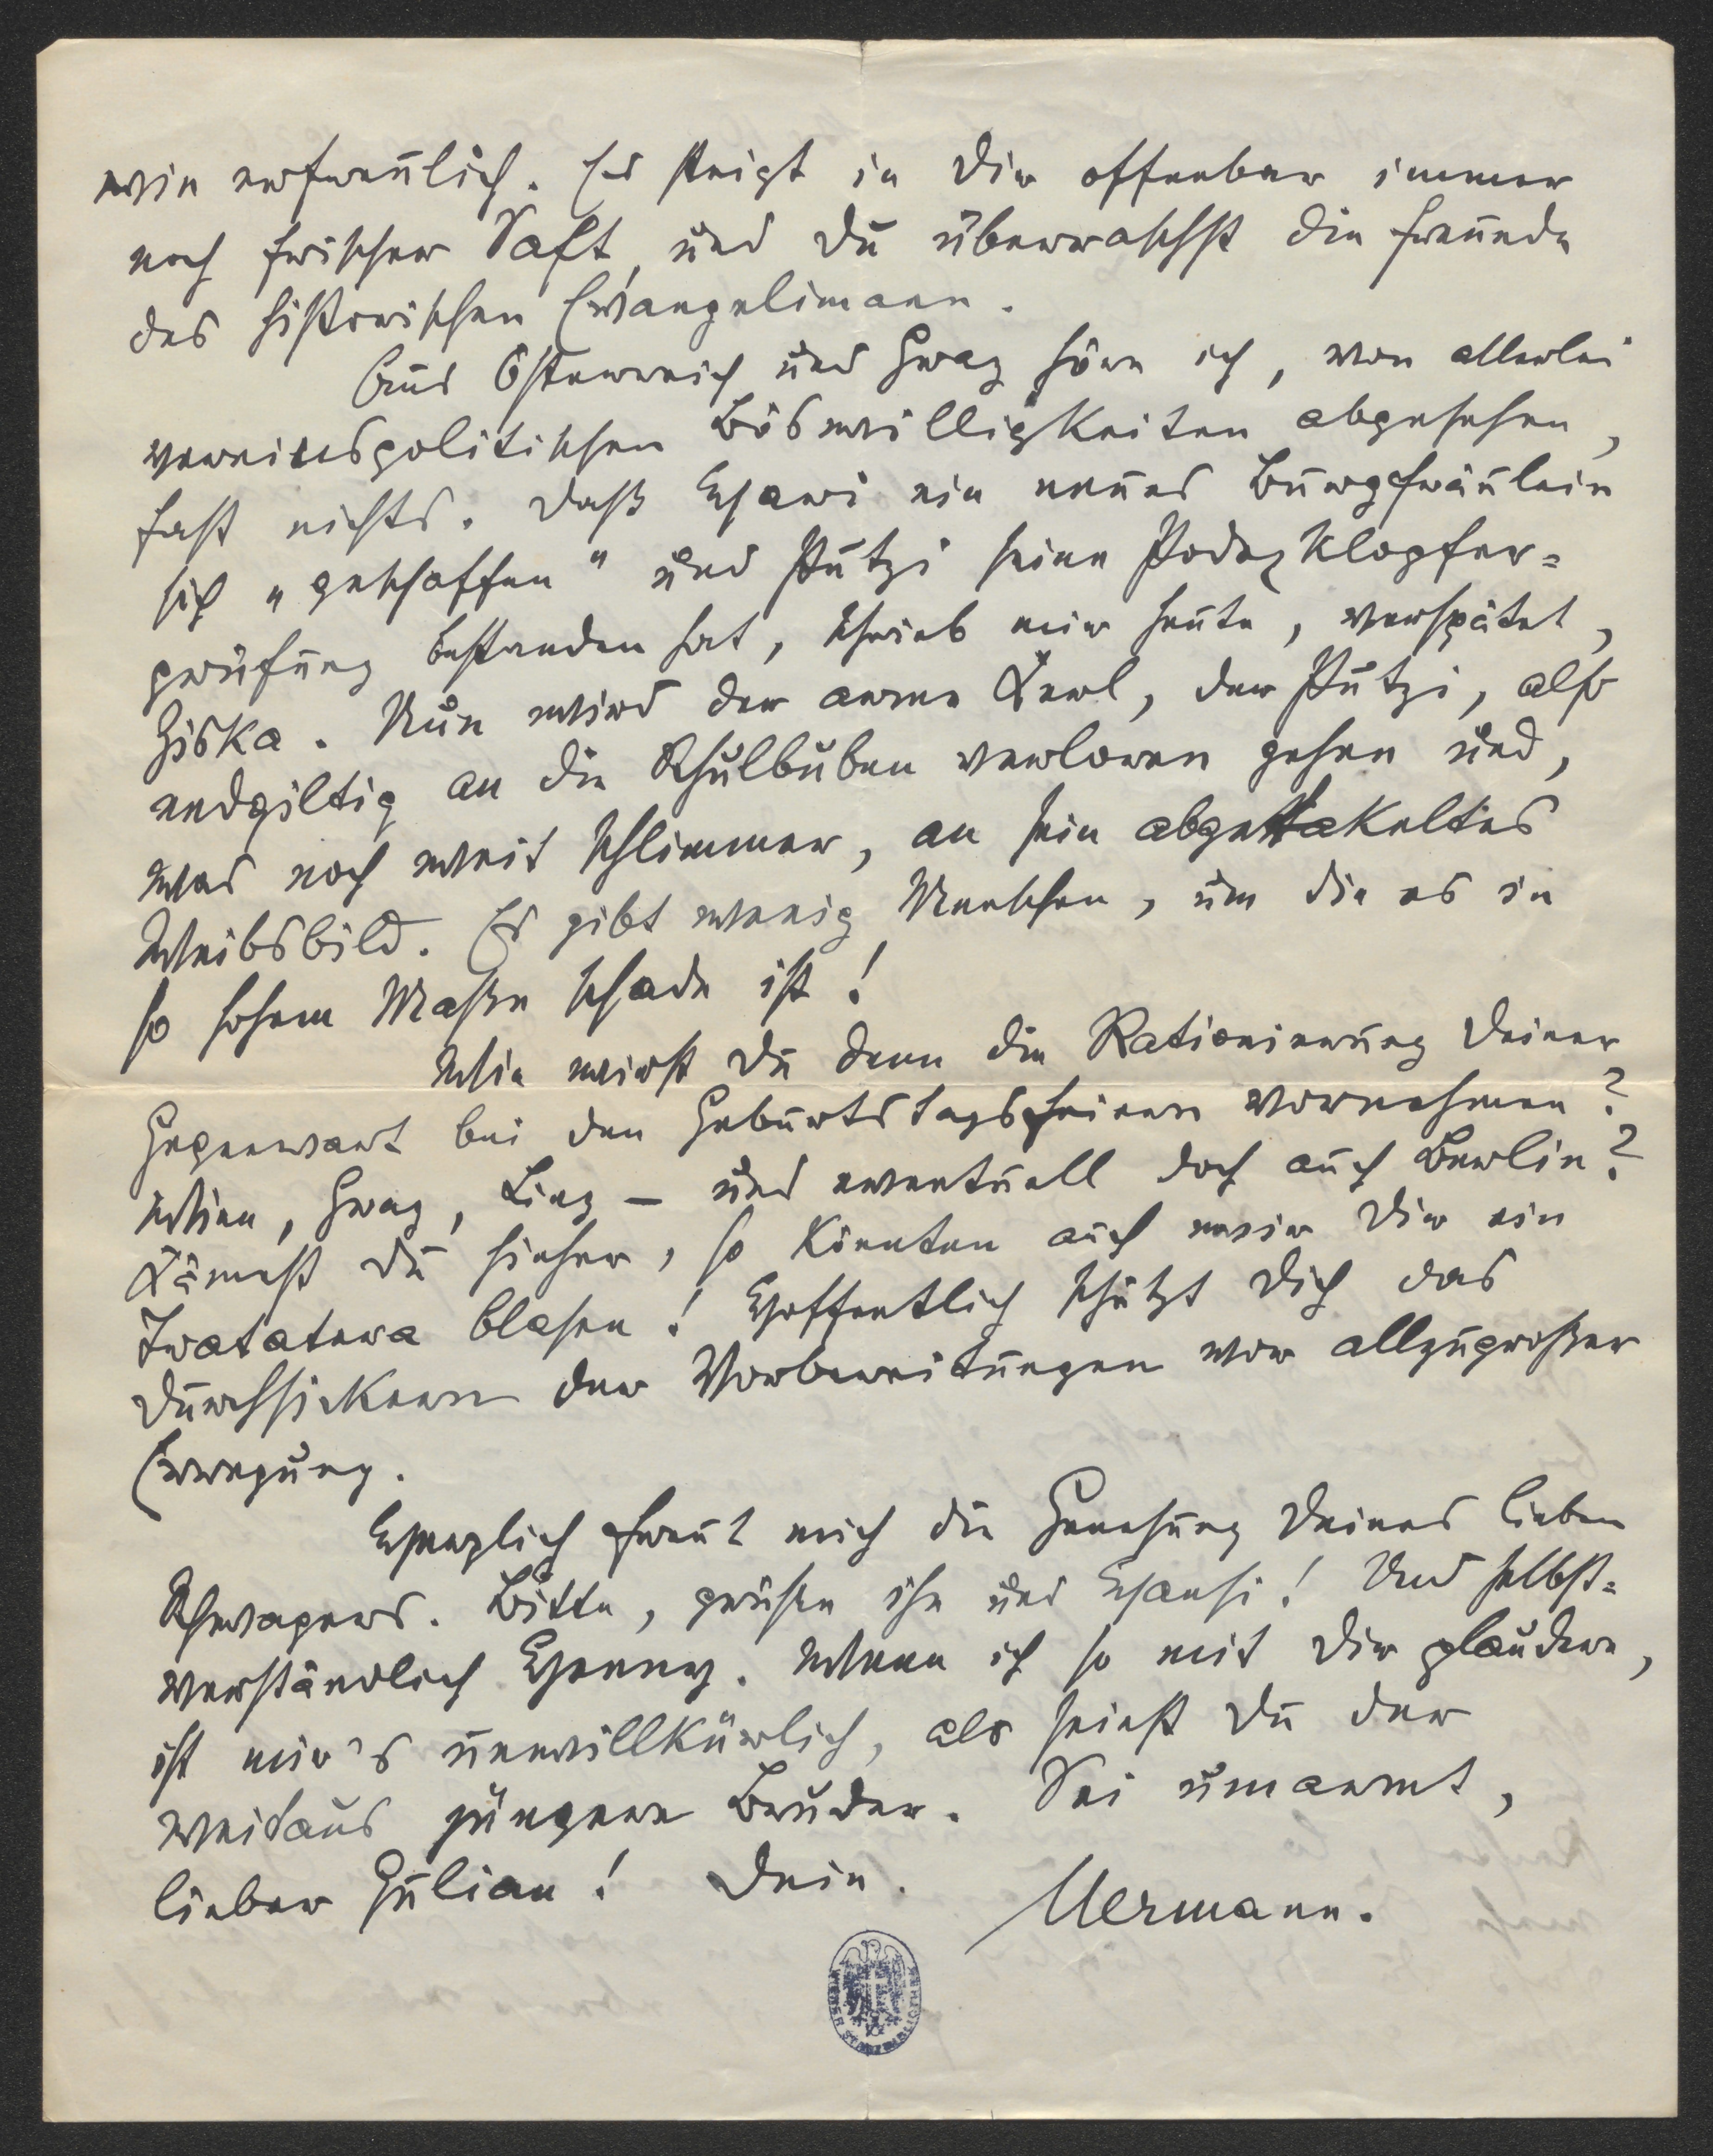 wie erfreulich. Es steigt in Dir offenbar immer
noch frischer Saft, und Du überraschst die Freunde
des historischen Evangelimann.
Aus Österreich und Graz höre ich, von allerlei
vereinspolitischen Böswilligkeiten abgesehen,
fast nichts. Daß Hari ein neues Burgfräulein
sich „geschaffen" und Stutzi seine Klopfer=
prüfung bestanden hat, schrieb mir heute, verspätet,
Ziska. Nun wird der arme Kerl, der Stutzi, also
endgiltig an die Schulbuben verloren gehen und,
was noch weit schlimmer, an sein abgetakeltes
Weibsbild. Es gibt wenig Menschen, um die es in
so hohem Maße schade ist!
Wie wirst Du denn die Rationierung Deiner
Gegenwart bei den Geburtstagsfeiern vornehmen?
Wien, Graz, Linz – und eventuell doch auch Berlin?
Kämest Du hieher, so könnten auch wir Dir ein
Tratatara blasen! Hoffentlich schützt Dich das
Durchsickern der Vorbereitungen vor allzugroßer
Erregung.
Herzlich freut mich die Genesung Deines lieben
Schwagers. Bitte, grüße ihn und Hansi! Und selbst=
verständlich Henny. Wenn ich so mit Dir plaudere,
ist mir's unwillkürlich, als seiest Du der
weitaus jüngere Bruder. Sei umarmt,
lieber Julian! Dein
Hermann.
WIENER STADTBIBLIOTHEK